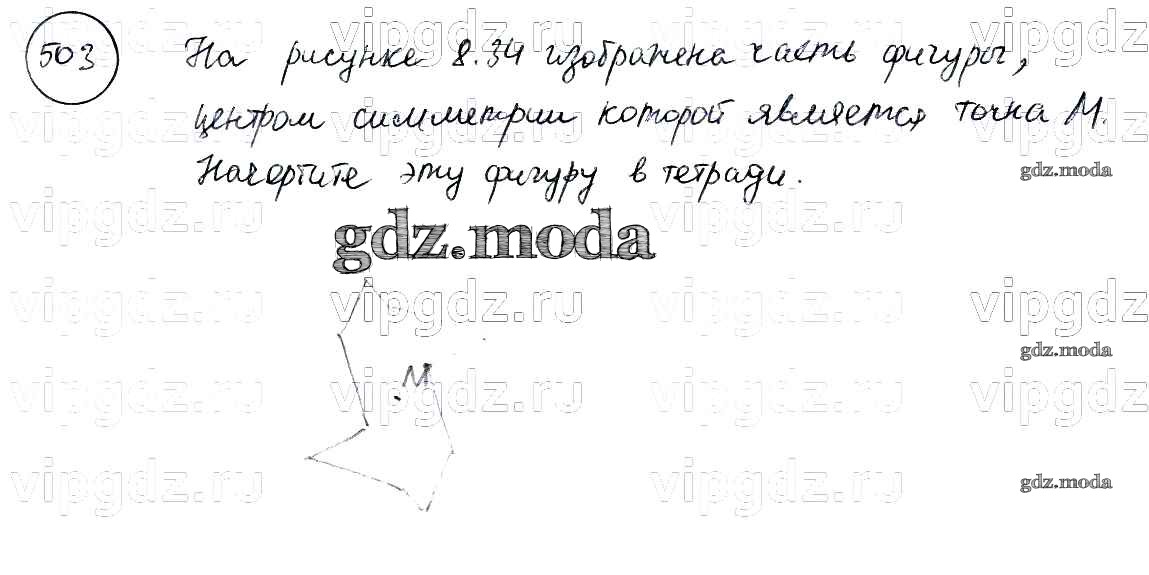 503 На рисунке 8.34 изображена часть фигуры,
центром симметрии которой является точка М.
Начертите эту фигуру в тетради.
gdz.moda
gdz.moda
vipgdz.ru vipgdz.ru vipgdz.ru vipgdz.ru
vipgdz.ru vipgdz.ru vipgdz.ru vipgdz.ru
vipgdz.ru vipgdz.ru vipgdz.ru
vipgdz.ru vipgdz.ru vipgdz.ru vipgdz.ru
gdz.moda
М
vipgdz.ru vipgdz.ru vipgdz.ru vipgdz.ru
vipgdz.ru vipgdz.ru
gdz.moda